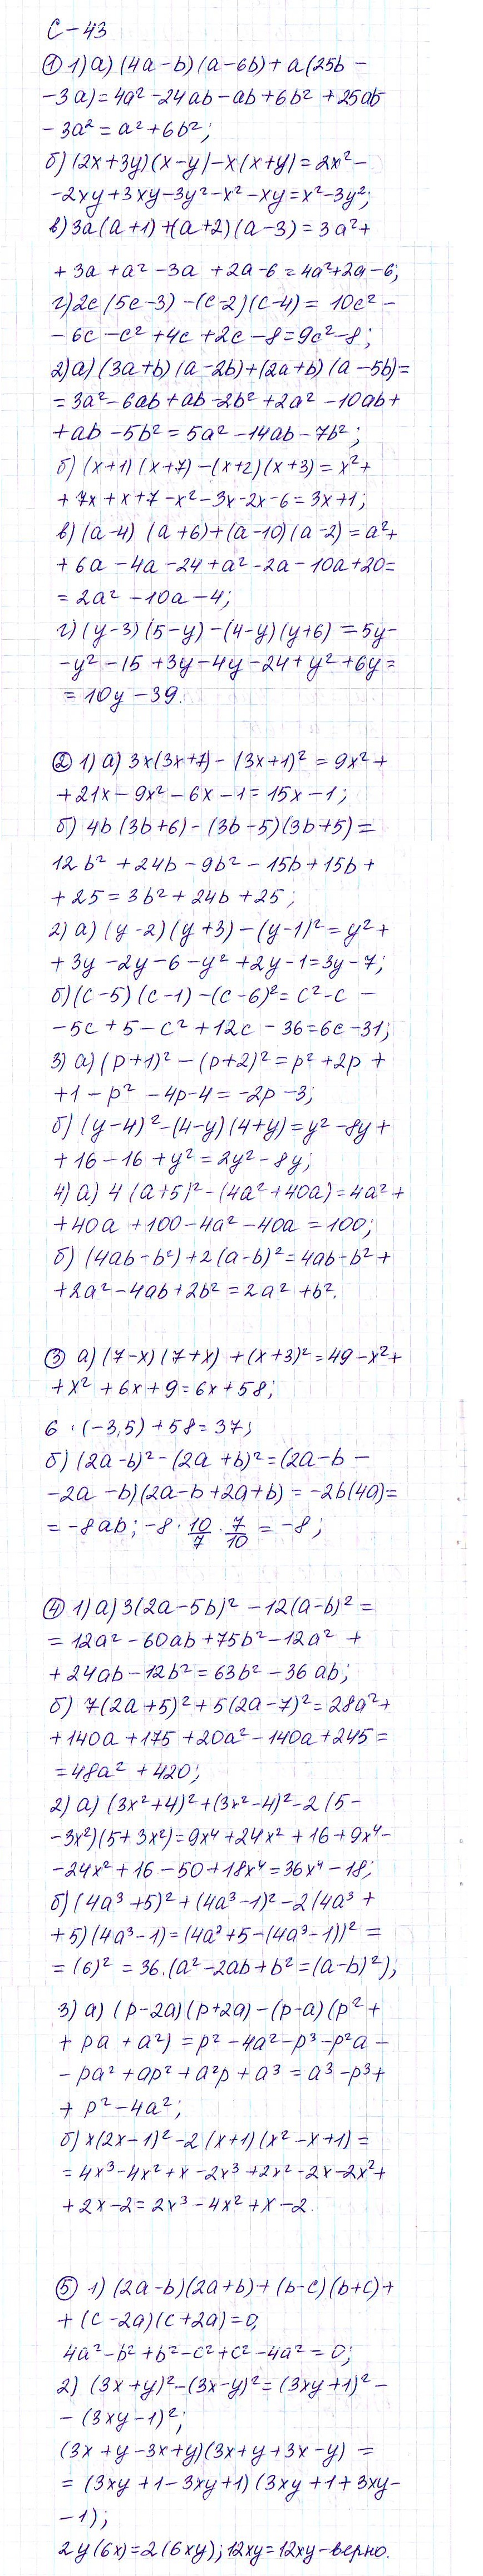 С-43
① 1) а) (4a-b)(a-6b)+a(25b-
-3a)=4a²-24ab-ab+6b²+25ab-
-3a²=a²+6b²;
б) (2x+3y)(x-y)-x(x+y)=2x²-
-2xy+3xy-3y²-x²-xy=x²-3y²;
в) 3a(a+1)+(a+2)(a-3)=3a²+
+3a+a²-3a+2a-6=4a²+2a-6;
г) 2c(5c-3)-(c-2)(c-4)=10c²-
-6c-c²+4c+2c-8=9c²-8;
2) а) (3a+b)(a-2b)+(2a+b)(a-5b)=
=3a²-6ab+ab-2b²+2a²-10ab+
+ab-5b²=5a²-14ab-7b²;
б) (x+1)(x+7)-(x+2)(x+3)=x²+
+7x+x+7-x²-3x-2x-6=3x+1;
в) (a-4)(a+6)+(a-10)(a-2)=a²+
+6a-4a-24+a²-2a-10a+20=
=2a²-10a-4;
г) (y-3)(5-y)-(4-y)(y+6)=5y-
-y²-15+3y-4y-24+y²+6y=
=10y-39.
② 1) а) 3x(3x+7)-(3x+1)²=9x²+
+21x-9x²-6x-1=15x-1;
б) 4b(3b+6)-(3b-5)(3b+5)=
12b²+24b-9b²-15b+15b+
+25=3b²+24b+25;
2) а) (y-2)(y+3)-(y-1)²=y²+
+3y-2y-6-y²+2y-1=3y-7;
б) (c-5)(c-1)-(c-6)²=c²-c-
-5c+5-c²+12c-36=6c-31;
3) а) (p+1)²-(p+2)²=p²+2p+
+1-p²-4p-4=-2p-3;
б) (y-4)²-(4-y)(4+y)=y²-8y+
+16-16+y²=2y²-8y;
4) а) 4(a+5)²-(4a²+40a)=4a²+
+40a+100-4a²-40a=100;
б) (4ab-b²)+2(a-b)²=4ab-b²+
+2a²-4ab+2b²=2a²+b².
③ а) (7-x)(7+x)+(x+3)²=49-x²+
+x²+6x+9=6x+58;
6·(-3,5)+58=37;
б) (2a-b)²-(2a+b)²=(2a-b-
-2a-b)(2a-b+2a+b)=-2b(4a)=
=-8ab; -8·10/7·7/10=-8;
④ 1) а) 3(2a-5b)²-12(a-b)²=
=12a²-60ab+75b²-12a²+
+24ab-12b²=63b²-36ab;
б) 7(2a+5)²+5(2a-7)²=28a²+
+140a+175+20a²-140a+245=
=48a²+420;
2) а) (3x²+4)²+(3x²-4)²-2(5-
-3x²)(5+3x²)=9x⁴+24x²+16+9x⁴-
-24x²+16-50+18x⁴=36x⁴-18;
б) (4a³+5)²+(4a³-1)²-2(4a³+
+5)(4a³-1)=(4a³+5-(4a³-1))²=
=(6)²=36.(a²-2ab+b²=(a-b)²);
3) а) (p-2a)(p+2a)-(p-a)(p²+
+pa+a²)=p²-4a²-p³-p²a-
-pa²+ap²+a²p+a³=a³-p³+
+p²-4a²;
б) x(2x-1)²-2(x+1)(x²-x+1)=
=4x³-4x²+x-2x³+2x²-2x-2x²+
+2x-2=2x³-4x²+x-2.
⑤ 1) (2a-b)(2a+b)+(b-c)(b+c)+
+(c-2a)(c+2a)=0,
4a²-b²+b²-c²+c²-4a²=0;
2) (3x+y)²-(3x-y)²=(3xy+1)²-
-(3xy-1)²;
(3x+y-3x+y)(3x+y+3x-y)=
=(3xy+1-3xy+1)(3xy+1+3xy-
-1);
2y(6x)=2(6xy); 12xy=12xy-верно.